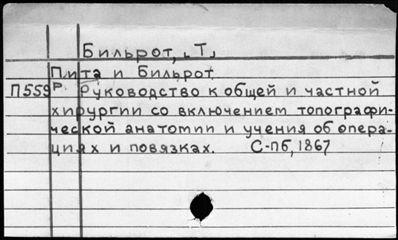 Бильрот, Т.
Пита и Бильрот.
П559 Руководство к общей и частной
хирургии со включением топографи-
ческой анатомии и учения об опера-
циях и повязках. С-пб, 1867